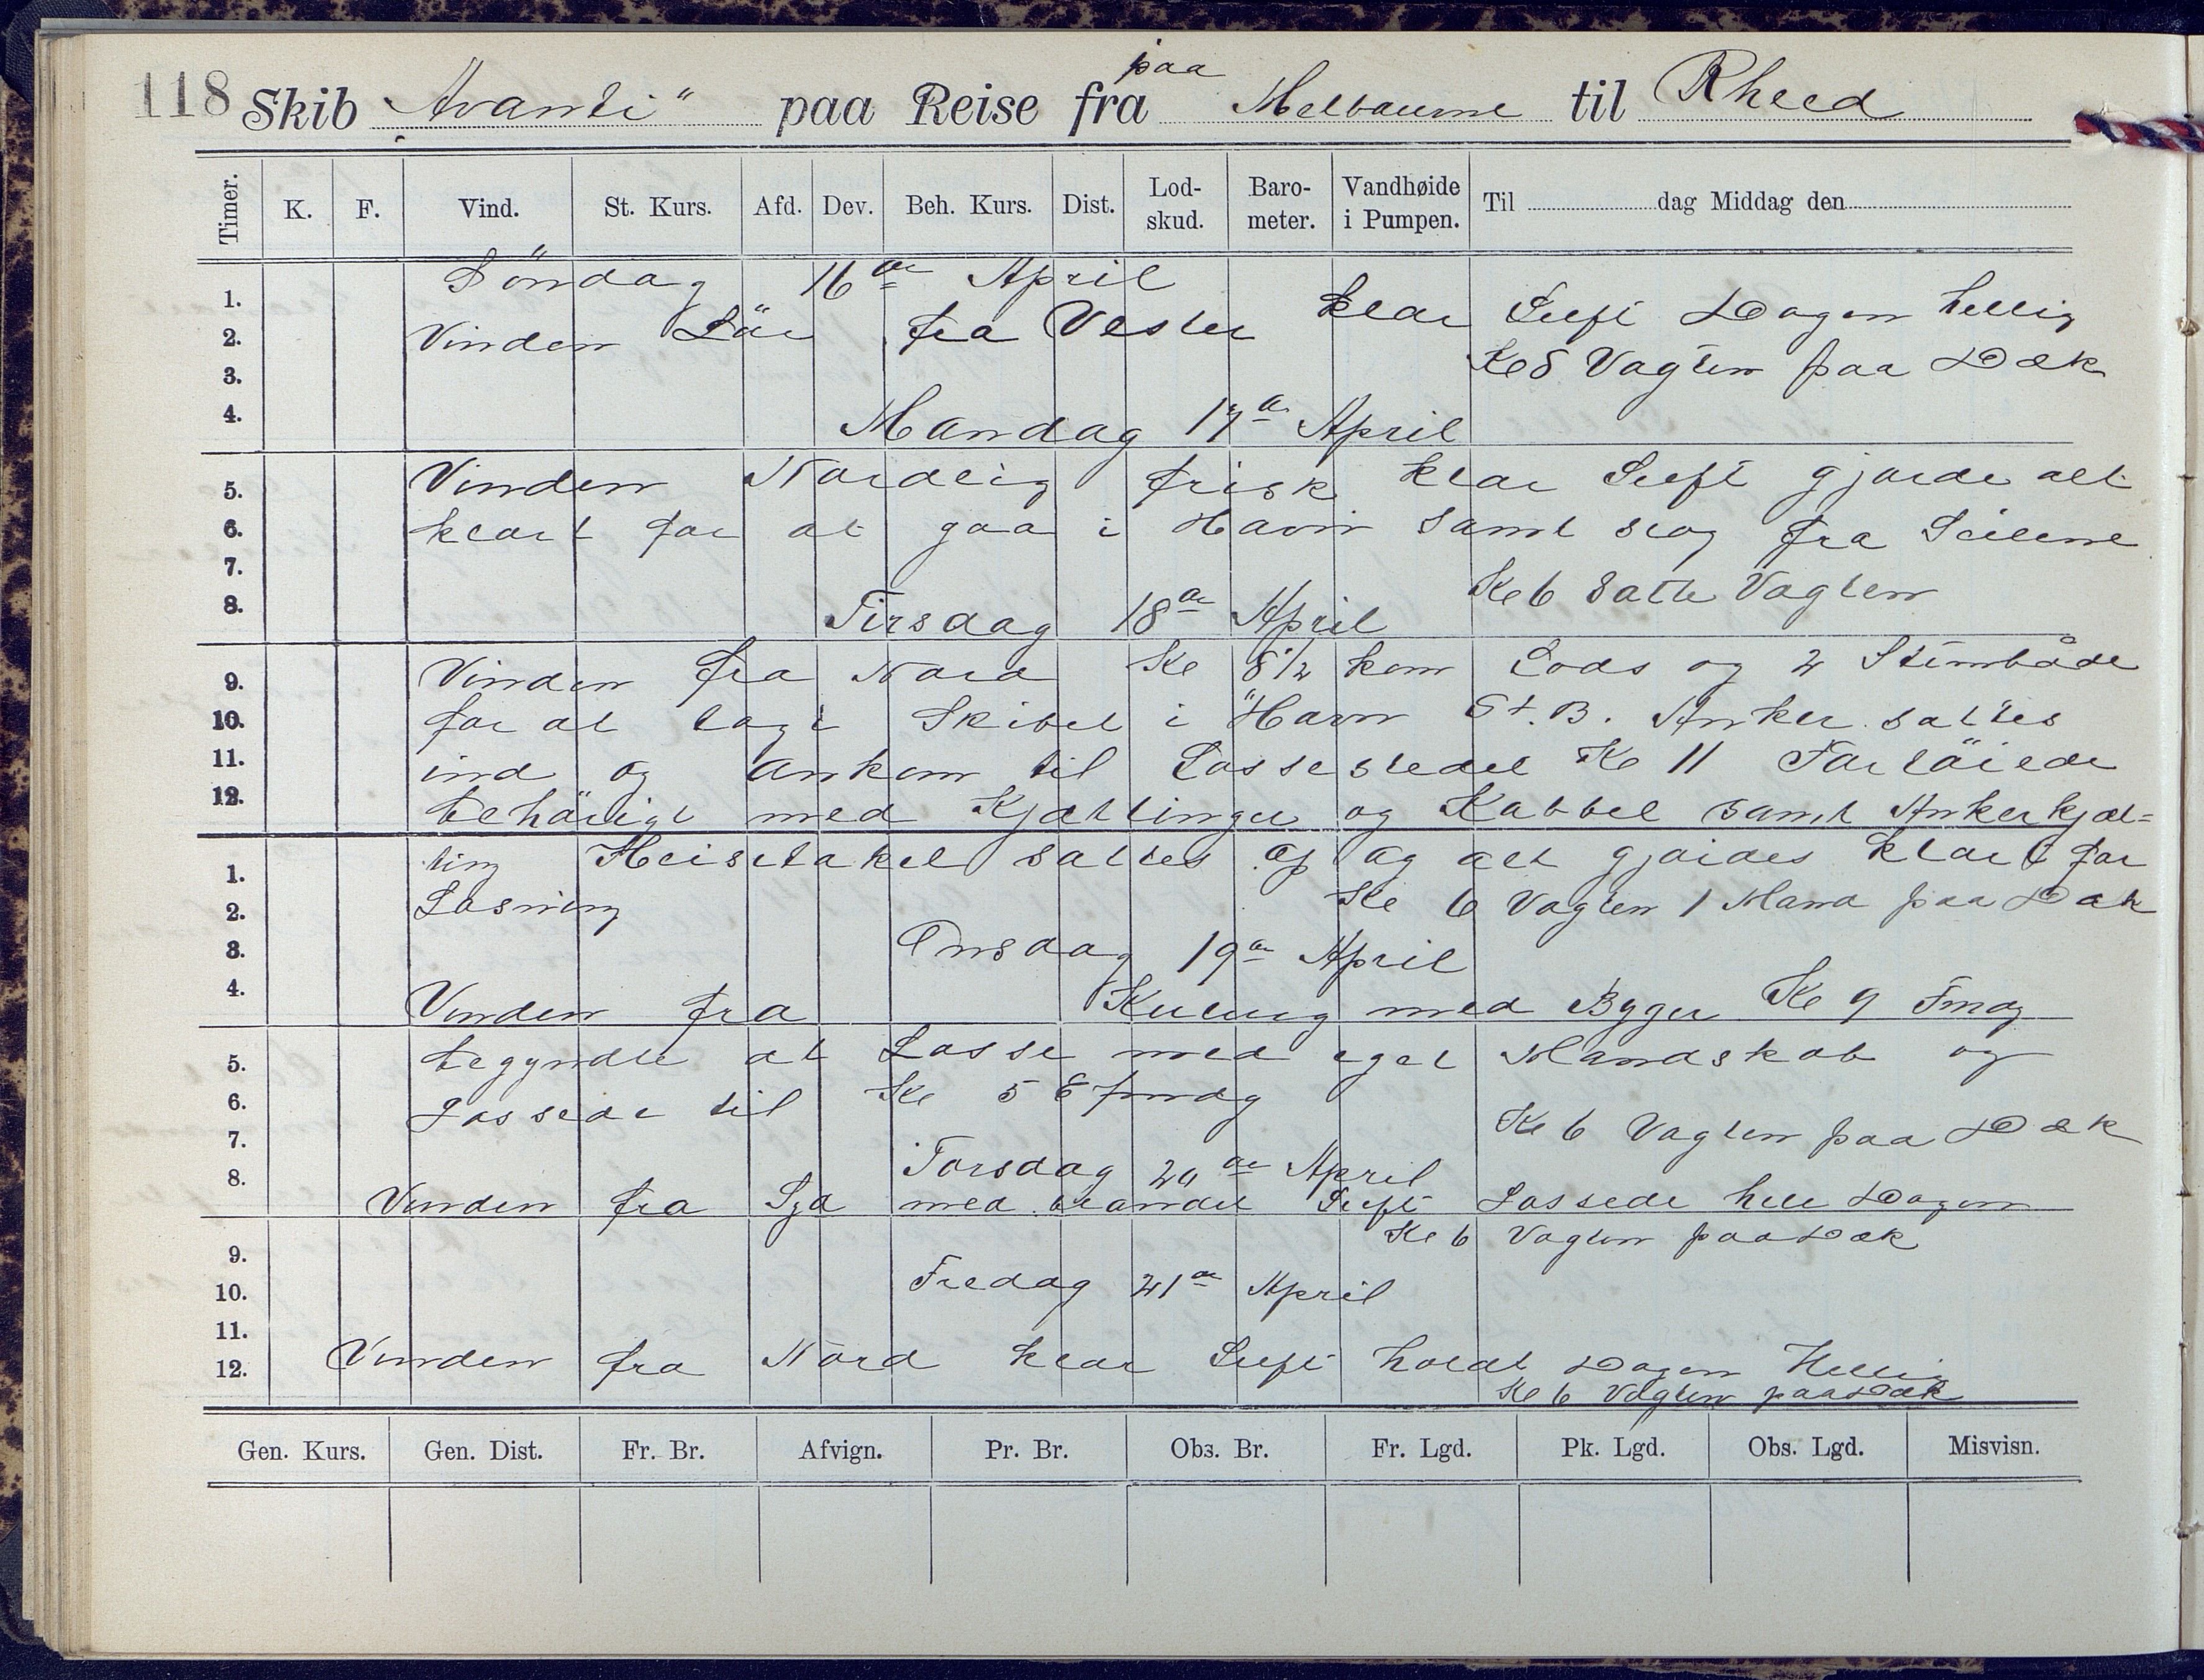 118 Skib „Avanti" paa Reise fra paa Melbourne til Rheed
Timer. K. F. Vind. St. Kurs. Afd. Dev. Beh. Kurs. Dist. Lod-skud. Baro-meter. Vandhøide i Pumpen. Til dag Middag den
Söndag 16de April
1.
2. Vinden Lör fra Vester klar Luft Dagen hellig
3. Kl 8 Vagten paa Dæk
4. Mandag 17de April
5. Vinden Nordlig frisk klar Luft gjorde alt
6. klart for at gaa i Havn samt slog fra Seilene
7. Kl 6 Satte Vagten
8. Tirsdag 18de April
9. Vinden fra Nord Kl 8½ kom Lods og 2 Stimbåde
10. for at tage Skibet i Havn St.B. Anker sattes
11. ind og Ankom til Lossestedet Kl 11 Fortöiede
12. behörigt med Kjættinger og Kabbel samt Ankerkjæt=
1. ting Heisetakel sattes op og alt gjordes klart for
2. Losning Kl 6 Vagten 1 Mand paa Dæk
3. Onsdag 19de April
4. Vinden fra Kuling med Byger Kl 9 Fmdg
5. begyndte at Losse med eget Mandskab og
6. Lossede til Kl 5 Efmdg
7. Kl 6 Vagten paa Dæk
8. Torsdag 20de April
Vinden fra Syd med blandet Luft Lossede hele Dagen
9. Kl 6 Vagten paa Dæk
10. Fredag 21de April
11.
12. Vinden fra Nord klar Luft holdt Dagen Hellig
Kl 6 Vagten paa Dæk
Gen. Kurs. Gen. Dist. Fr. Br. Afvign. Pr. Br. Obs. Br. Fr. Lgd. Pk. Lgd. Obs. Lgd. Misvisn.